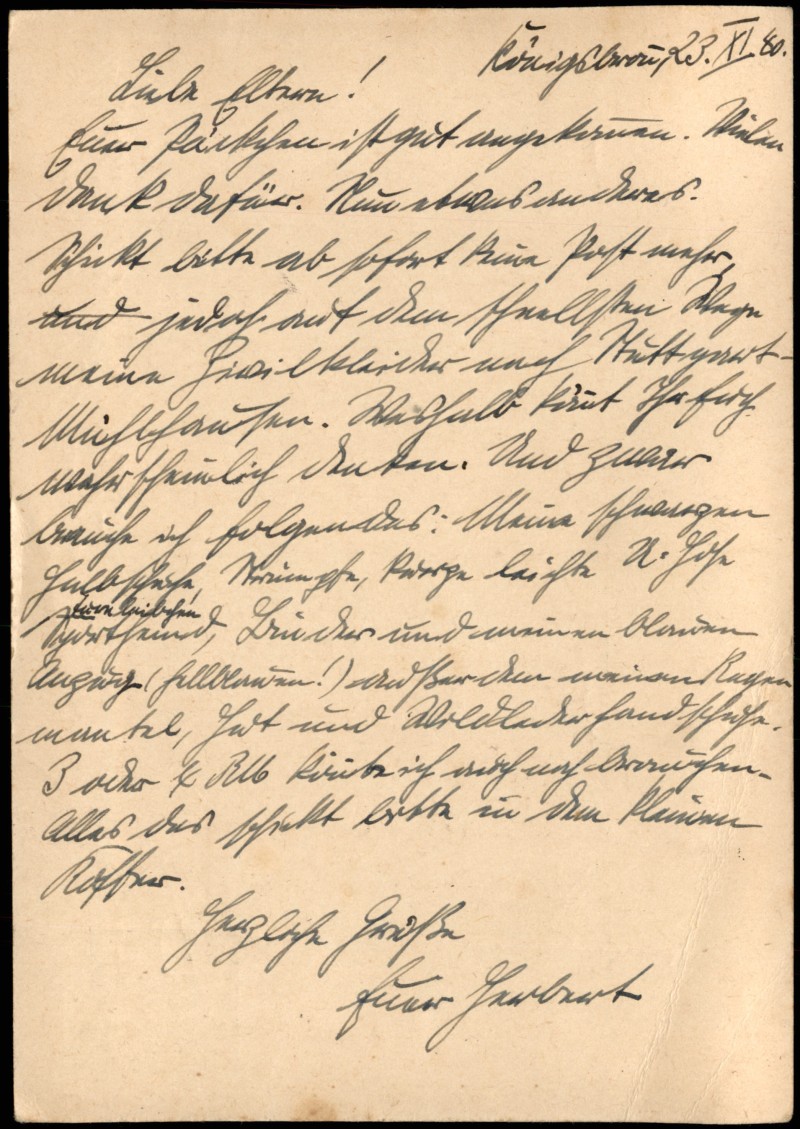 Königsbronn, 23. XI. 40.
Liebe Eltern!
Euer Päckchen ist gut angekom̅en. Vielen
Dank dafür. Nun etwas anderes.
Schickt bitte ab sofort keine Post mehr,
und jedoch auf dem schnellsten Wege
meine Zivilkleider nach Stuttgart-
Mühlhausen. Weshalb kön̅t Ihr Euch
wahrscheinlich denken. Und zwar
brauche ich folgendes: Meine schwarzen
Halbschuhe, Strümpfe, kurze leichte U.-Hose
Sporthemd, Binder und meinen blauen
Anzug (hellblauen!) außerdem meinen Regen
mantel, Hut und Wildlederhandschuhe.
3 oder 4 RM kön̅te ich auch noch brauchen.
Alles das schickt bitte in dem kleinen
Koffer.
Herzliche Grüße
Euer Herbert